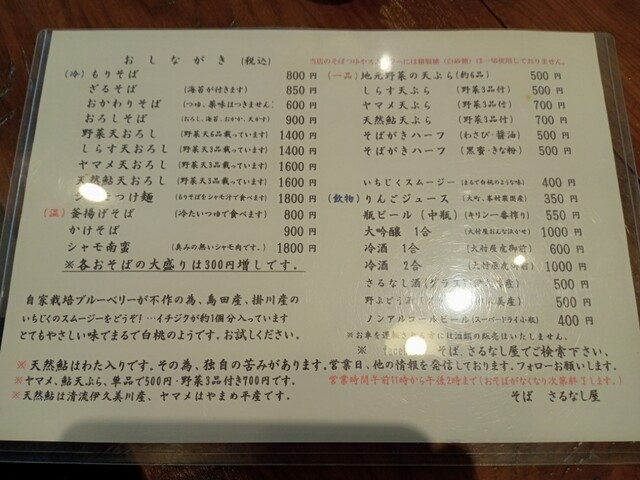 おしながき (税込)
(冷) もりそば 800円
ざるそば (海苔が付きます) 850円
おかわりそば (つゆ、薬味はつきません) 600円
おろしそば (おろし、海苔、おかか、天かす) 900円
野菜天おろし (野菜天6品載っています) 1400円
しらす天おろし (野菜天3品載っています) 1400円
ヤマメ天おろし (野菜天3品載っています) 1600円
天然鮎天おろし (野菜天3品載っています) 1600円
つけ麺 (もりそばをシャモ汁で食べます) 1800円
(温) 釜揚げそば (冷たいつゆで食べます) 800円
かけそば 900円
シャモ南蛮 (臭みの無いシャモ肉です。) 1800円
※各おそばの大盛りは300円増しです。
自家栽培ブルーベリーが不作の為、島田産、掛川産の
いちじくのスムージーをどうぞ!…イチジクが約1個分入っています
とてもやさしい味でまるで白桃のようです。お試しください。
当店のそばつゆやスムージーには精製糖(白砂糖)は一切使用しておりません。
(一品) 地元野菜の天ぷら (約6品) 500円
しらす天ぷら (野菜3品付) 500円
ヤマメ天ぷら (野菜3品付) 700円
天然鮎天ぷら (野菜3品付) 700円
そばがきハーフ (わさび・醤油) 500円
そばがきハーフ (黒蜜・きな粉) 500円
いちじくスムージー (まるで白桃のような味) 400円
(飲物) りんごジュース (大町、峯村農園産) 350円
瓶ビール(中瓶) (キリン一番搾り) 550円
大吟醸 1合 (大村屋おんな泣かせ) 1000円
冷酒 1合 (大村屋夜御前) 600円
冷酒 2合 (大村屋夜御前) 1000円
さるなし酒(グラス) 500円
野ぶどう 500円
ノンアルコールビール (スーパードライ小瓶) 400円
※お車を運転される方には酒類の販売はいたしません。
※ face そば、さるなし屋でご検索下さい、
※天然鮎はわた入りです。その為、独自の苦みがあります。営業日、他の情報を発信しております。フォローお願いします。
※ヤマメ、鮎天ぷら、単品で500円・野菜3品付き700円です。
営業時間午前11時から午後2時まで(おそばがなくなり次第終了します。)
※天然鮎は清流伊久美川産、ヤマメはやまめ平産です。
そば さるなし屋